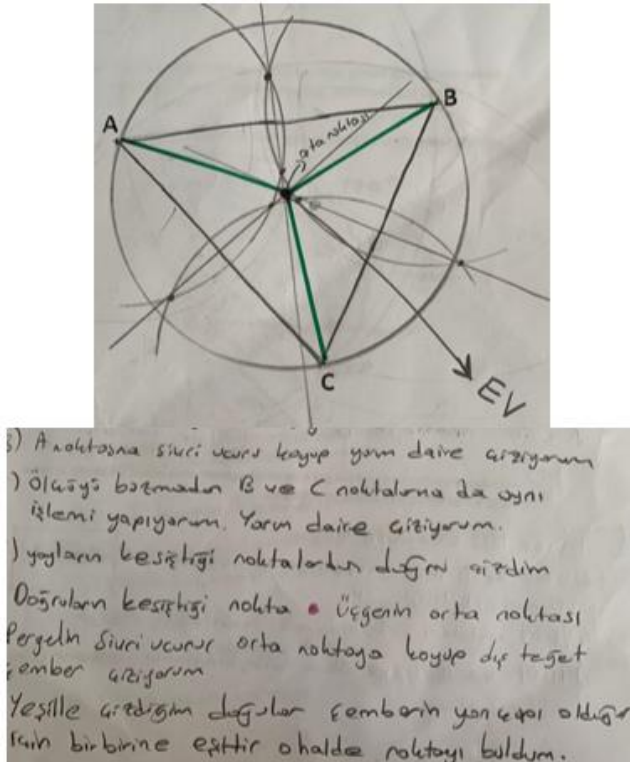 A
B
orta noktası
C
EV
3) A noktasına sivri ucunu koyup yarım daire çiziyorum
) Ölçüyü bozmadan B ve C noktalarına da aynı
işlemi yapıyorum. Yarım daire çiziyorum.
) yayların kesiştiği noktalardan doğru çizdim
Doğruların kesiştiği nokta • üçgenin orta noktası
Pergelin sivri ucunu orta noktaya koyup dış teğet
çember çiziyorum
Yeşille çizdiğim doğrular çemberin yarıçapı olduğu
için birbirine eşittir o halde noktayı buldum.